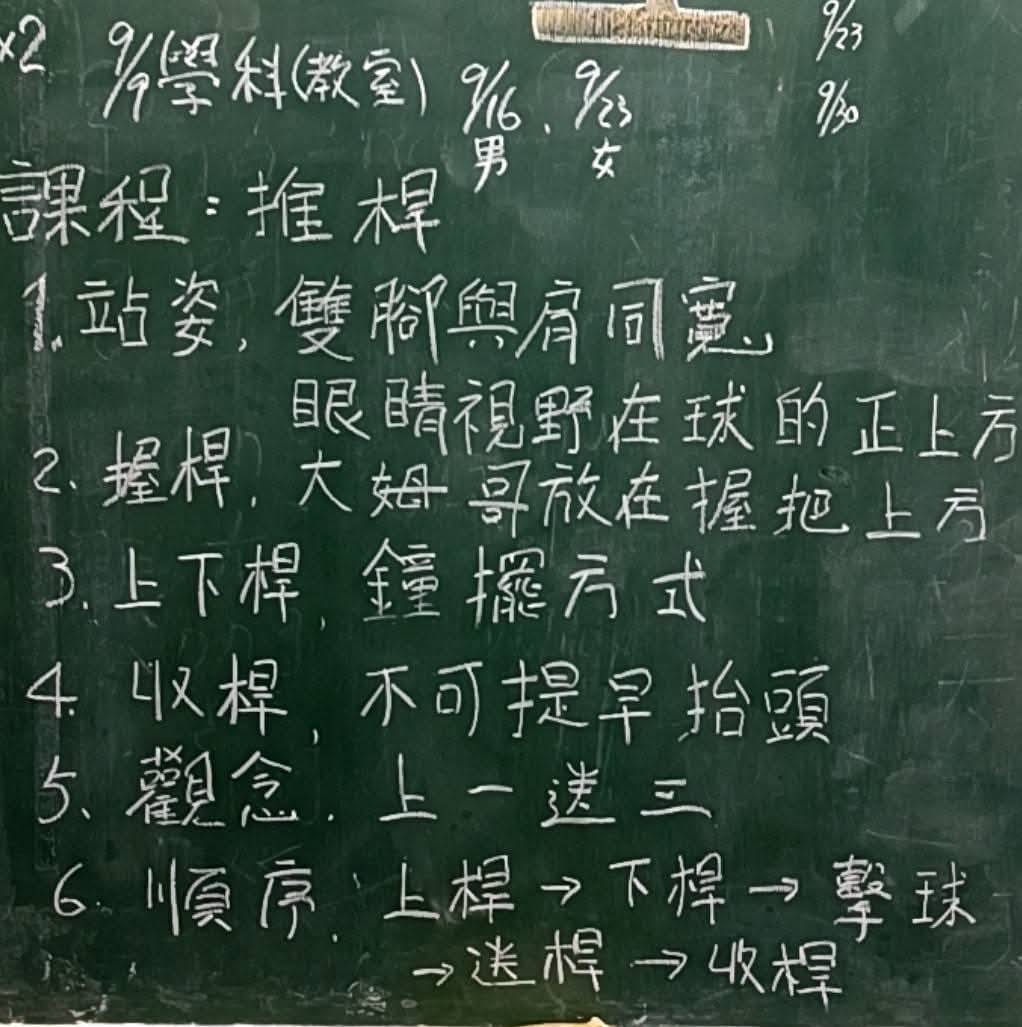 x2 9/9學科(教室) 9/16、9/23
男 女
9/23
9/30
課程:推桿
1.站姿,雙腳與肩同寬、
眼睛視野在球的正上方
2、握桿,大姆哥放在握把上方
3、上下桿,鐘擺方式
4、收桿,不可提早抬頭
5、觀念,上一送三
6、順序:上桿→下桿→擊球
→送桿→收桿